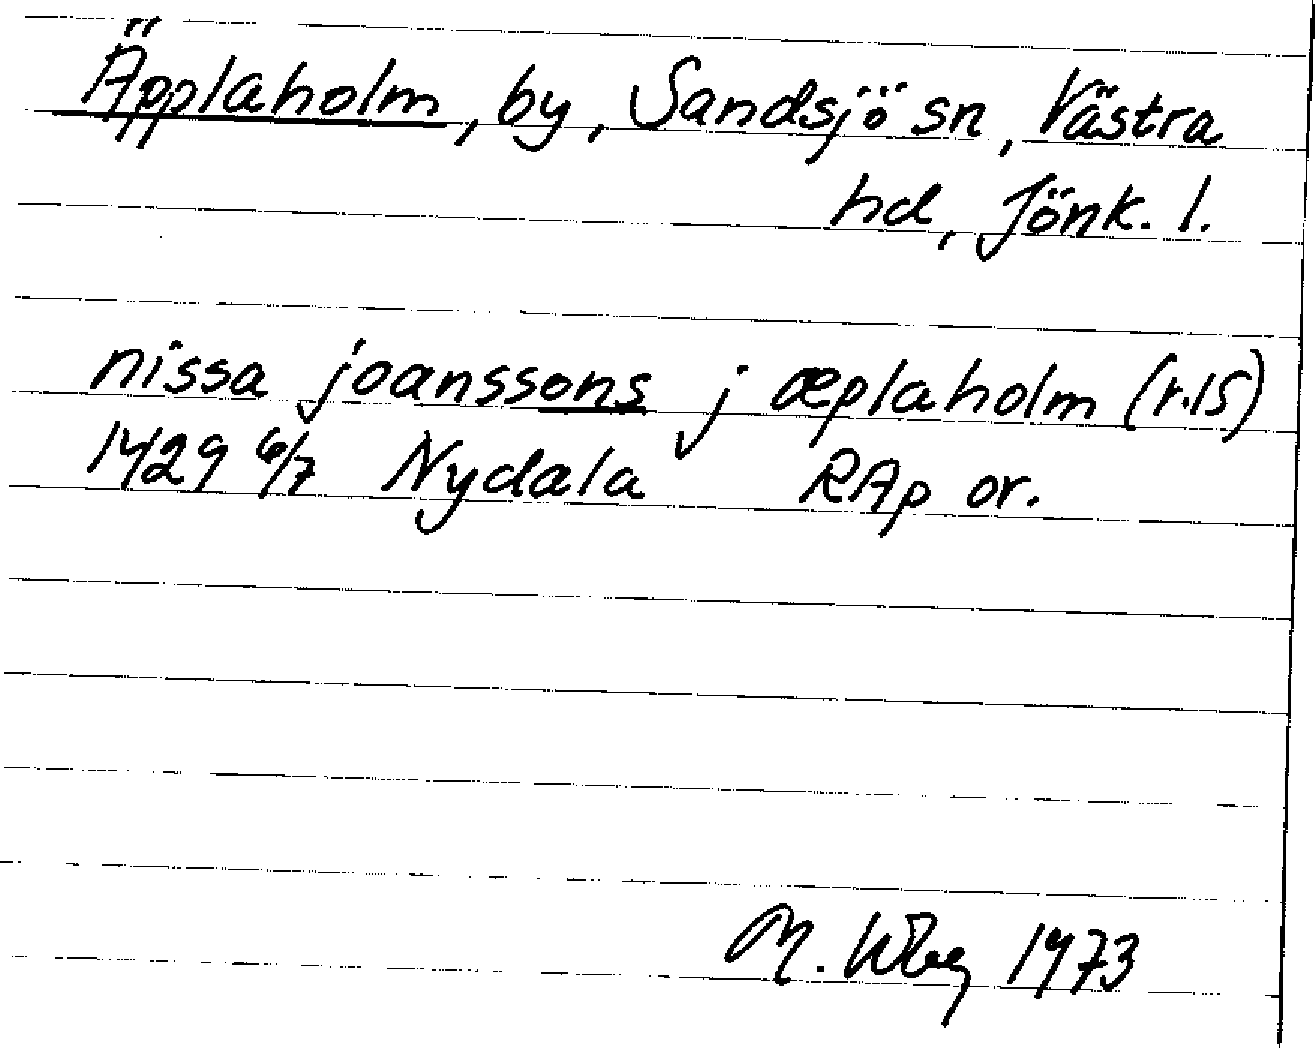 Äpplaholm, by, Sandsjö sn, Västra
hd, Jönk. l.
nissa joanssons j æplaholm (r.15)
1429 6/7 Nydala RAp or.
M. 1973